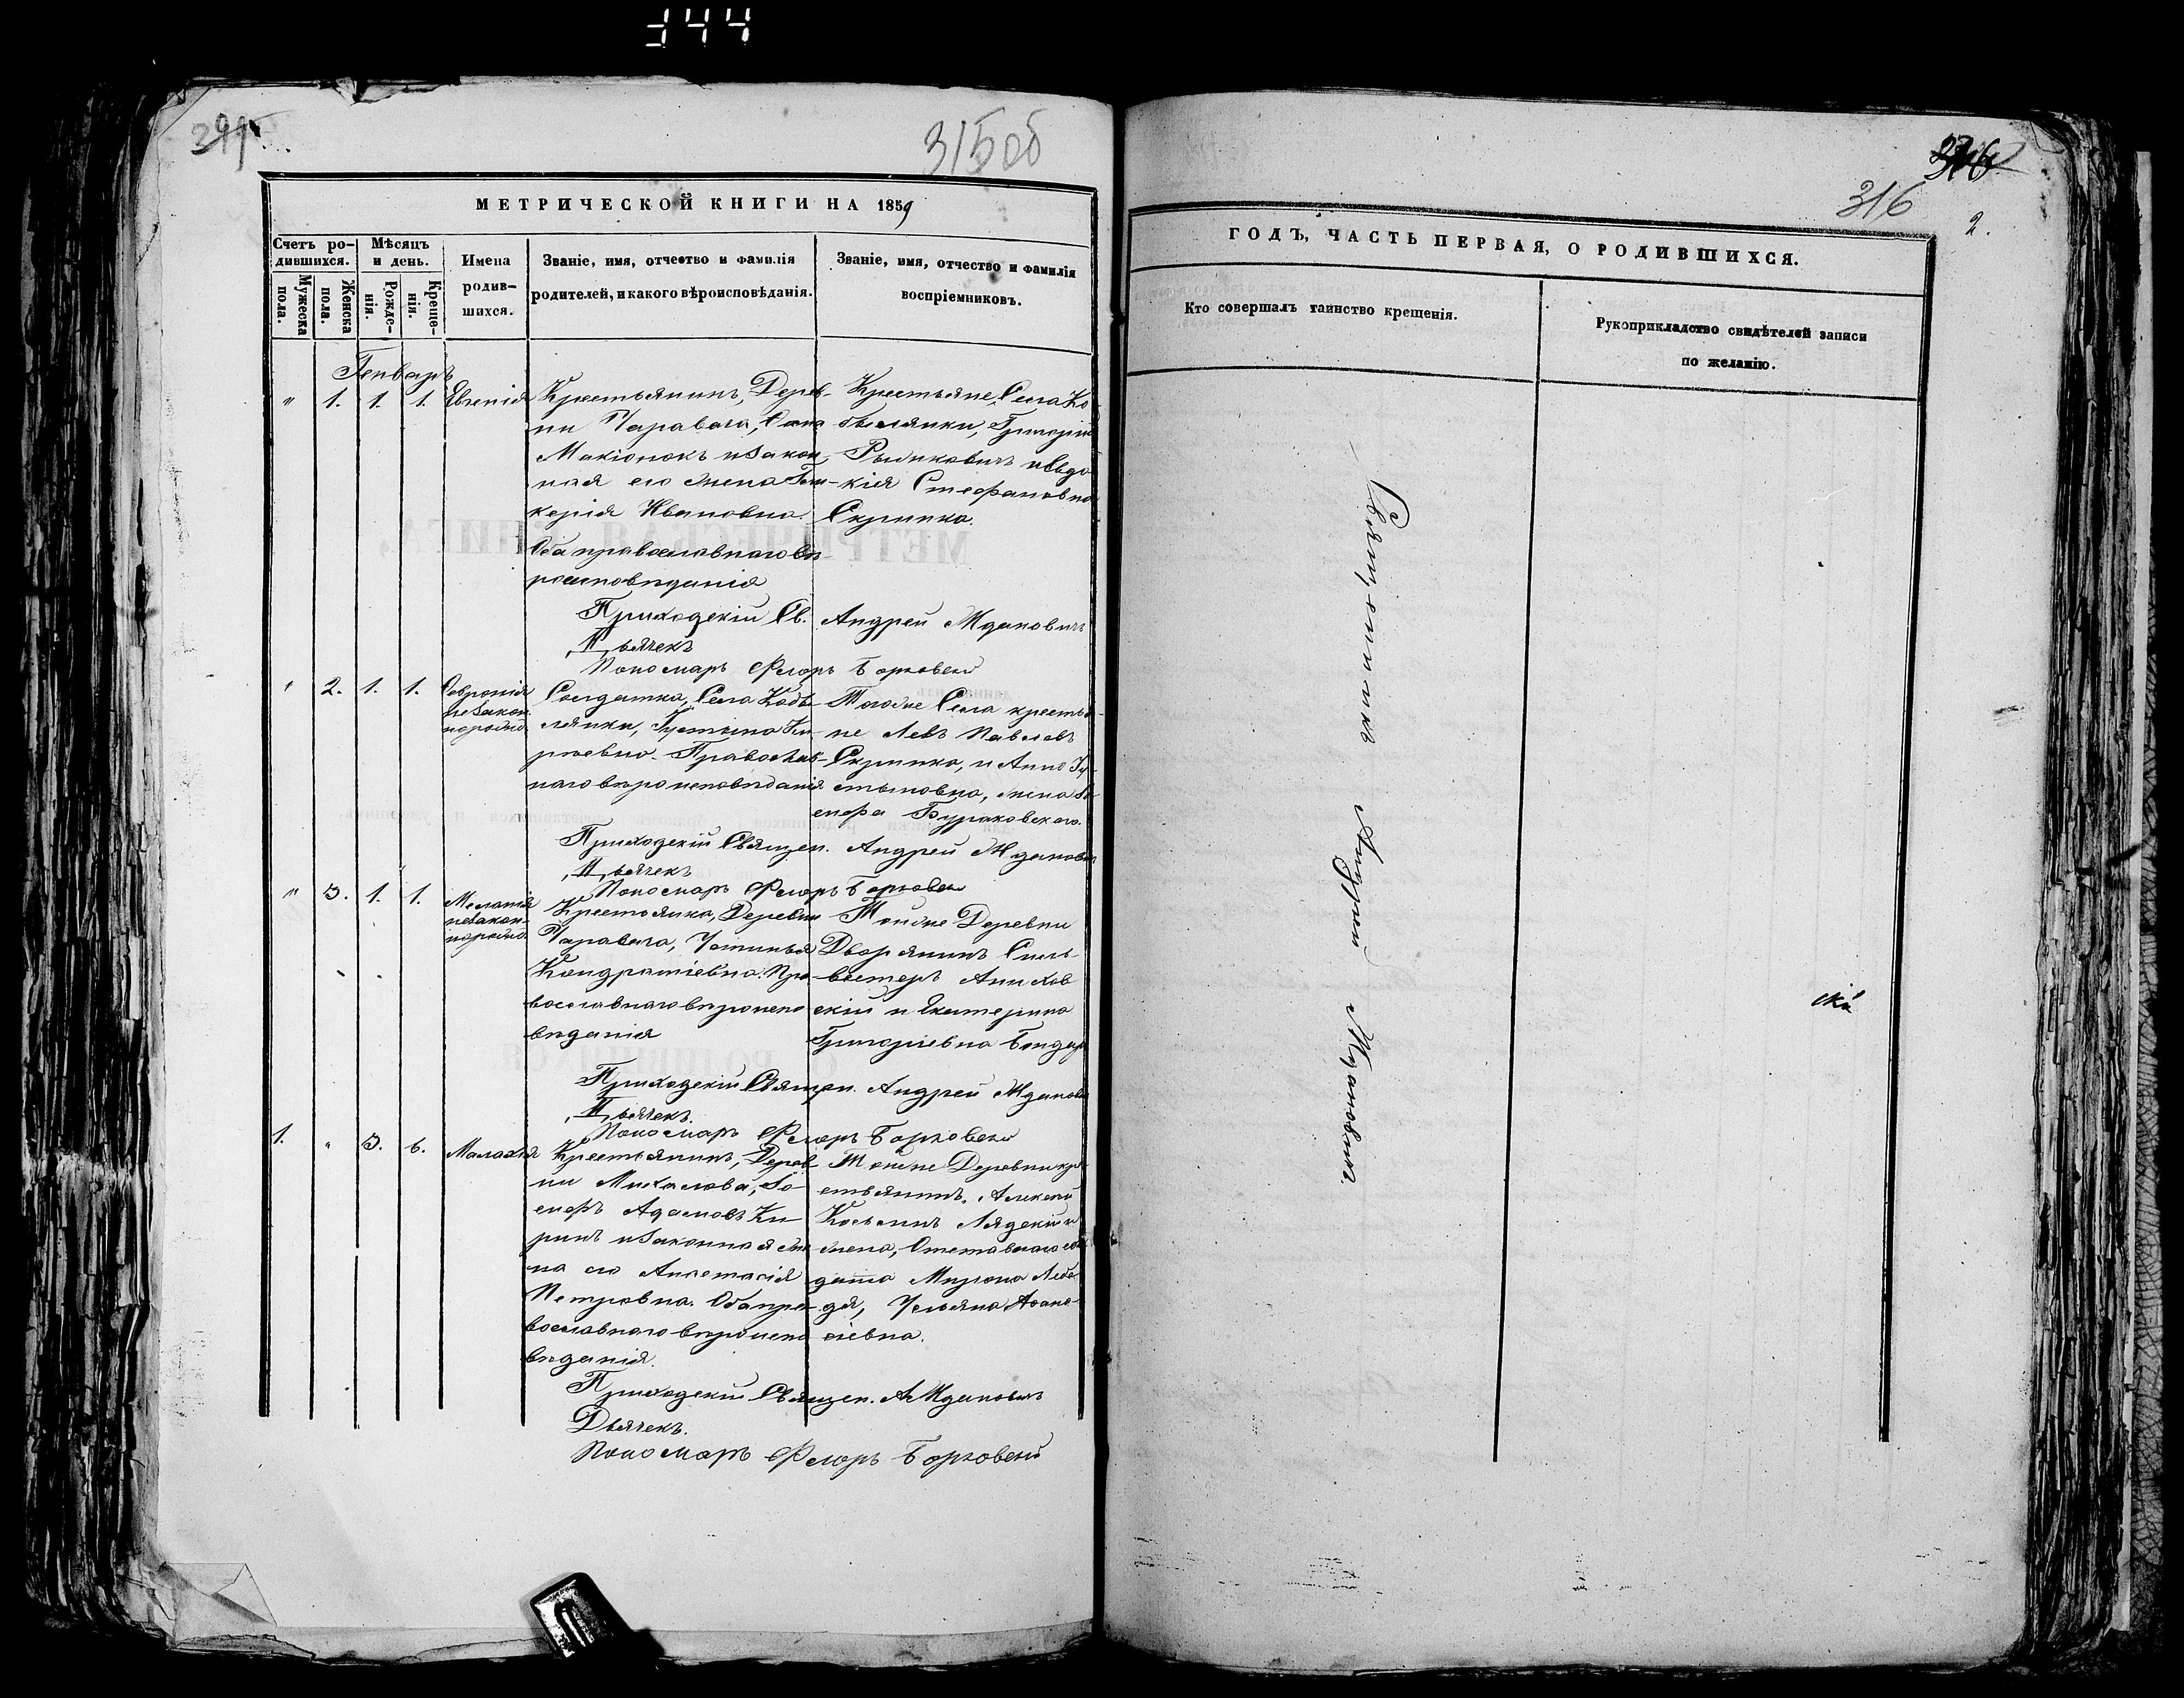 344
315об
МЕТРИЧЕСКОЙ КНИГИ НА 1859
Счетъ ро-
дившихся.
Мѣсяцъ
и день.
Мужеска
пола.
Женска
пола.
Рожде-
нія.
Креще-
нія.
Имена
родив-
шихся.
Званіе, имя, отчество и фамилія
родителей, и какого вѣроисповѣданія.
Званіе, имя, отчество и фамилія
воспріемниковъ.
Генварь
" 1. 1. 1. Евгенія
Крестьянинъ, Дерев-
ни Таравала,
и закон-
ная его жена Гли-
керія Ивановна.
Оба православнаго вѣ
роисповѣданія
Крестьяне, Села Ко
былянки, Григорій
и Евдо
кія Стефановна
Скрипка.
Приходскій Св. Андрей Ждановичъ
Дьячекъ
Пономарь Флоръ Барховскій
" 2. 1. 1.
незакон
норожд.
Солдатка, Села Кобы
лянки, Іустина Ки-
ріевна. Православ-
наго вѣроисповѣданія
Тогоже Села крестья-
не Левъ Павловъ
Скрипка, и Анна Іу-
стиновна, жена Іо-
сифа Бураковскаго.
Приходскій Священ. Андрей Ждановичъ
Дьячекъ
Пономарь Флоръ Барховскій
" 3. 1. 1. Меланія
незакон-
норожд.
Крестьянка, Деревни
Таравала, Устинья
Кондратіевна. Пра-
вославнаго вѣроиспо
вѣданія
Тойже Деревни
Дворянинъ Силь-
вестеръ
скій и Екатерина
Григоріевна Бондарь
Приходскій Священ. Андрей Ждановичъ
Дьячекъ
Пономарь Флоръ Барховскій
1. " 3. 6. Малахія
Крестьянинъ, Дерев
ни Михалова, Іо-
сифъ Адамовъ Ки-
и законная же
на его Анастасія
Петровна. Оба пра-
вославнаго вѣроиспо
вѣданія.
Тойже Деревни кре
стьянинъ, Алексѣй
Лядскій и
жена, Отставнаго сол
дата Мирона Лебе
дя, Ульяна Афана-
сіевна.
Приходскій Священ. А. Ждановичъ
Дьячекъ.
Пономарь Флоръ Барховскій
316
2.
ГОДЪ, ЧАСТЬ ПЕРВАЯ, О РОДИВШИХСЯ.
Кто совершалъ таинство крещенія.
Рукоприкладство свидѣтелей записи
по желанію.
Священникъ Андрей Ждановичъ